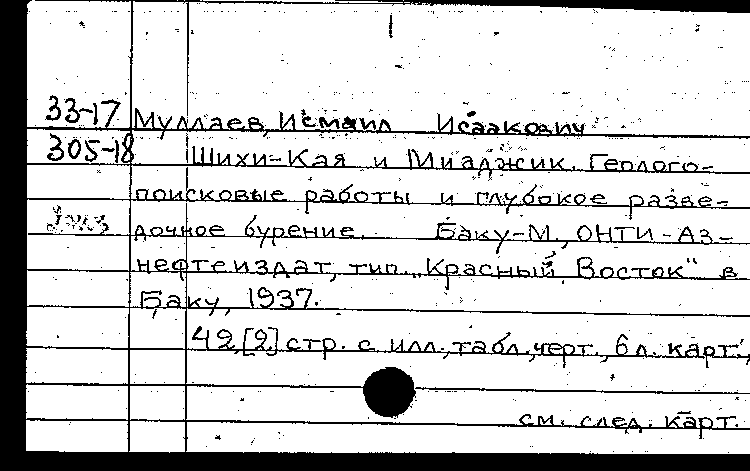 33-17 Муллаев, Исмаил Исаакович
305-18 Шихи-Кая и Миаджик. Геолого-
поисковые работы и глубокое разве-
2 экз дочное бурение. Баку-М., ОНТИ-Аз-
нефтеиздат, тип. „Красный Восток" в
Баку, 1937.
42,[2] стр. с илл., табл., черт., 6 л. карт.,
см. след. карт.